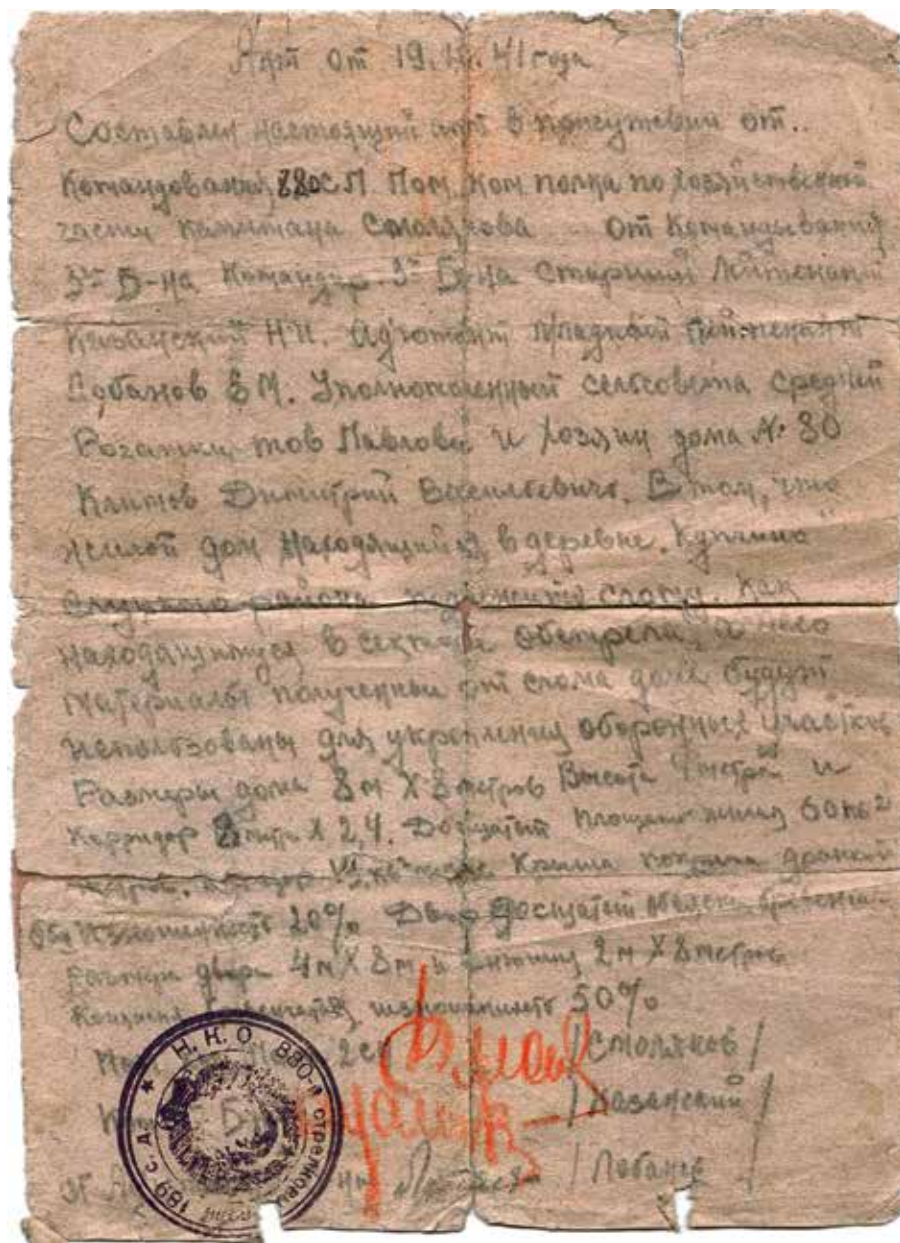 Акт от 19. 41 года
Составлен настоящий акт в присутствии от..
Командования 880 СП Пом. Ком полка по хозяйственной
части капитана Смолякова от Командывания
3го Б-на Командир 3го Б-на Старший Лейтенант
Казанский Н.И. Адъютант Младший Лейтенант
Лобанов В М. Уполномоченный сельсовета Средней
Рогатки тов Павлова и хозяин дома № 80
Климов Димитрий Васильевич. В том, что
жилой дом находящийся в деревне „Купчино"
Слуцкого района подлежит слому. Как
находящимуся в секторе обстрела, а
материалы полученные от слома дома будут
использованы для укрепления оборонных участков
Размеры дома 8м Х 8 метров Высота метра и
Корридор 8 метр Х 2,4. площадь 60 м²
Крыша покрыта дранкой
Изношенность 20% Двор досчатый
Размеры двора 4м Х 8м и 2м Х 8 метров
изношенность 50%
/ Смоляков /
/ Казанский /
/ Лобанов
Н.К.О. 880-й стрелковый 189 с.д.